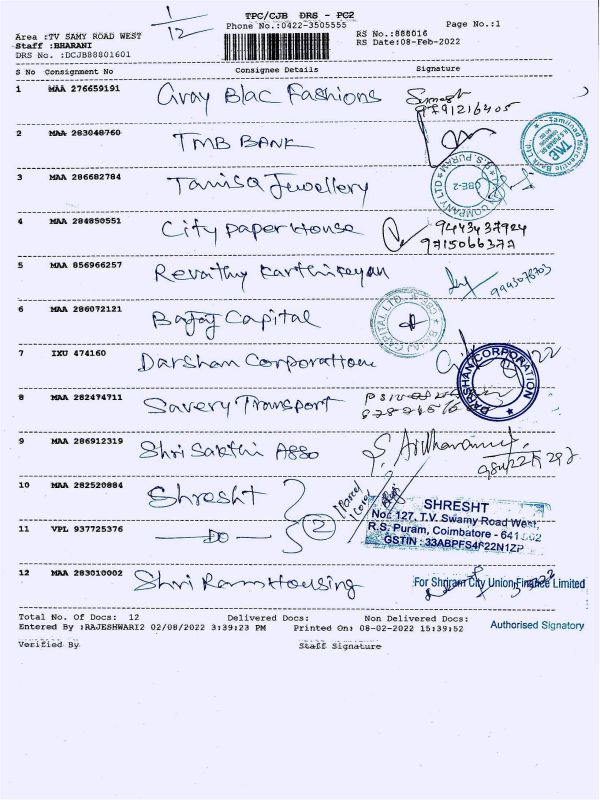 1/12
TPC/CJB DRS - PC2
Phone No.:0422-3505555
Page No.:1
Area :TV SAMY ROAD WEST
Staff :BHARANI
DRS No. :DCJB88801601
RS No.:888016
RS Date:08-Feb-2022
S No Consignment No Consignee Details Signature
1 MAA 276659191 Gray Blac Fashions
9791216405
2 MAA 283048760 TMB BANK
Tamilnad Mercantile Bank Ltd
TMB
3 MAA 286682784 Tanisa Jewellery
COMPANY LTD
CBE-2
R.S PURAM
4 MAA 284850551 City paper House 9443437924
9715066377
5 MAA 856966257 Revathy Karthikeyan 9943078703
6 MAA 286072121 Bajaj Capital
BAJAJ CAPITAL LTD. CBE
7 IXU 474160 Darshan Corporation
DARSHAN CORPORATION
8 MAA 282474711 Savery Transport
9 MAA 286912319 Shri Sakthi Asso
10 MAA 282520884 Shresht
2
11 VPL 937725376 DO
SHRESHT
No: 127, T.V. Swamy Road West,
R.S. Puram, Coimbatore - 641 002
GSTIN : 33ABPFS4F22N1ZP
12 MAA 283010002 Shri Ram Housing
For Shriram City Union Finance Limited
Authorised Signatory
Total No. Of Docs: 12 Delivered Docs: Non Delivered Docs:
Entered By :RAJESHWARI2 02/08/2022 3:39:23 PM Printed On: 08-02-2022 15:39:52
Verified By Staff Signature